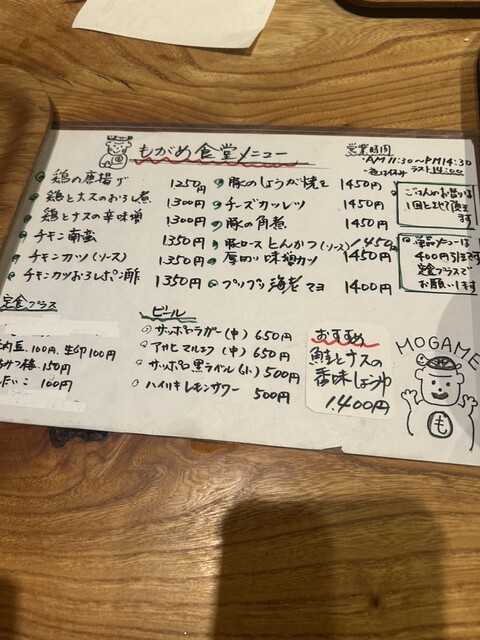 もがめ食堂メニュー
営業時間
AM11:30~PM14:30
ラスト14:00
鶏の唐揚げ 1250円
鶏とナスのおろし煮 1300円
鶏とナスの辛味噌 1300円
チキン南蛮 1350円
チキンカツ(ソース) 1350円
チキンカツおろしポン酢 1350円
豚のしょうが焼き 1450円
チーズカツレツ 1450円
豚の角煮 1450円
豚ロースとんかつ(ソース) 1450円
厚切り味噌カツ 1450円
プリプリ海老マヨ 1400円
ごはんのお替りは
1回とさせて頂きます
単品メニューは
400円引きです
定食プラスで
お願いします
定食プラス
納豆100円、生卵100円
150円
100円
ビール
サッポロラガー(中) 650円
アサヒマルエフ(中) 650円
サッポロ黒ラベル(小) 500円
ハイリキレモンサワー 500円
おすすめ
鮭とナスの
香味しょうゆ
1.400円
MOGAME
も